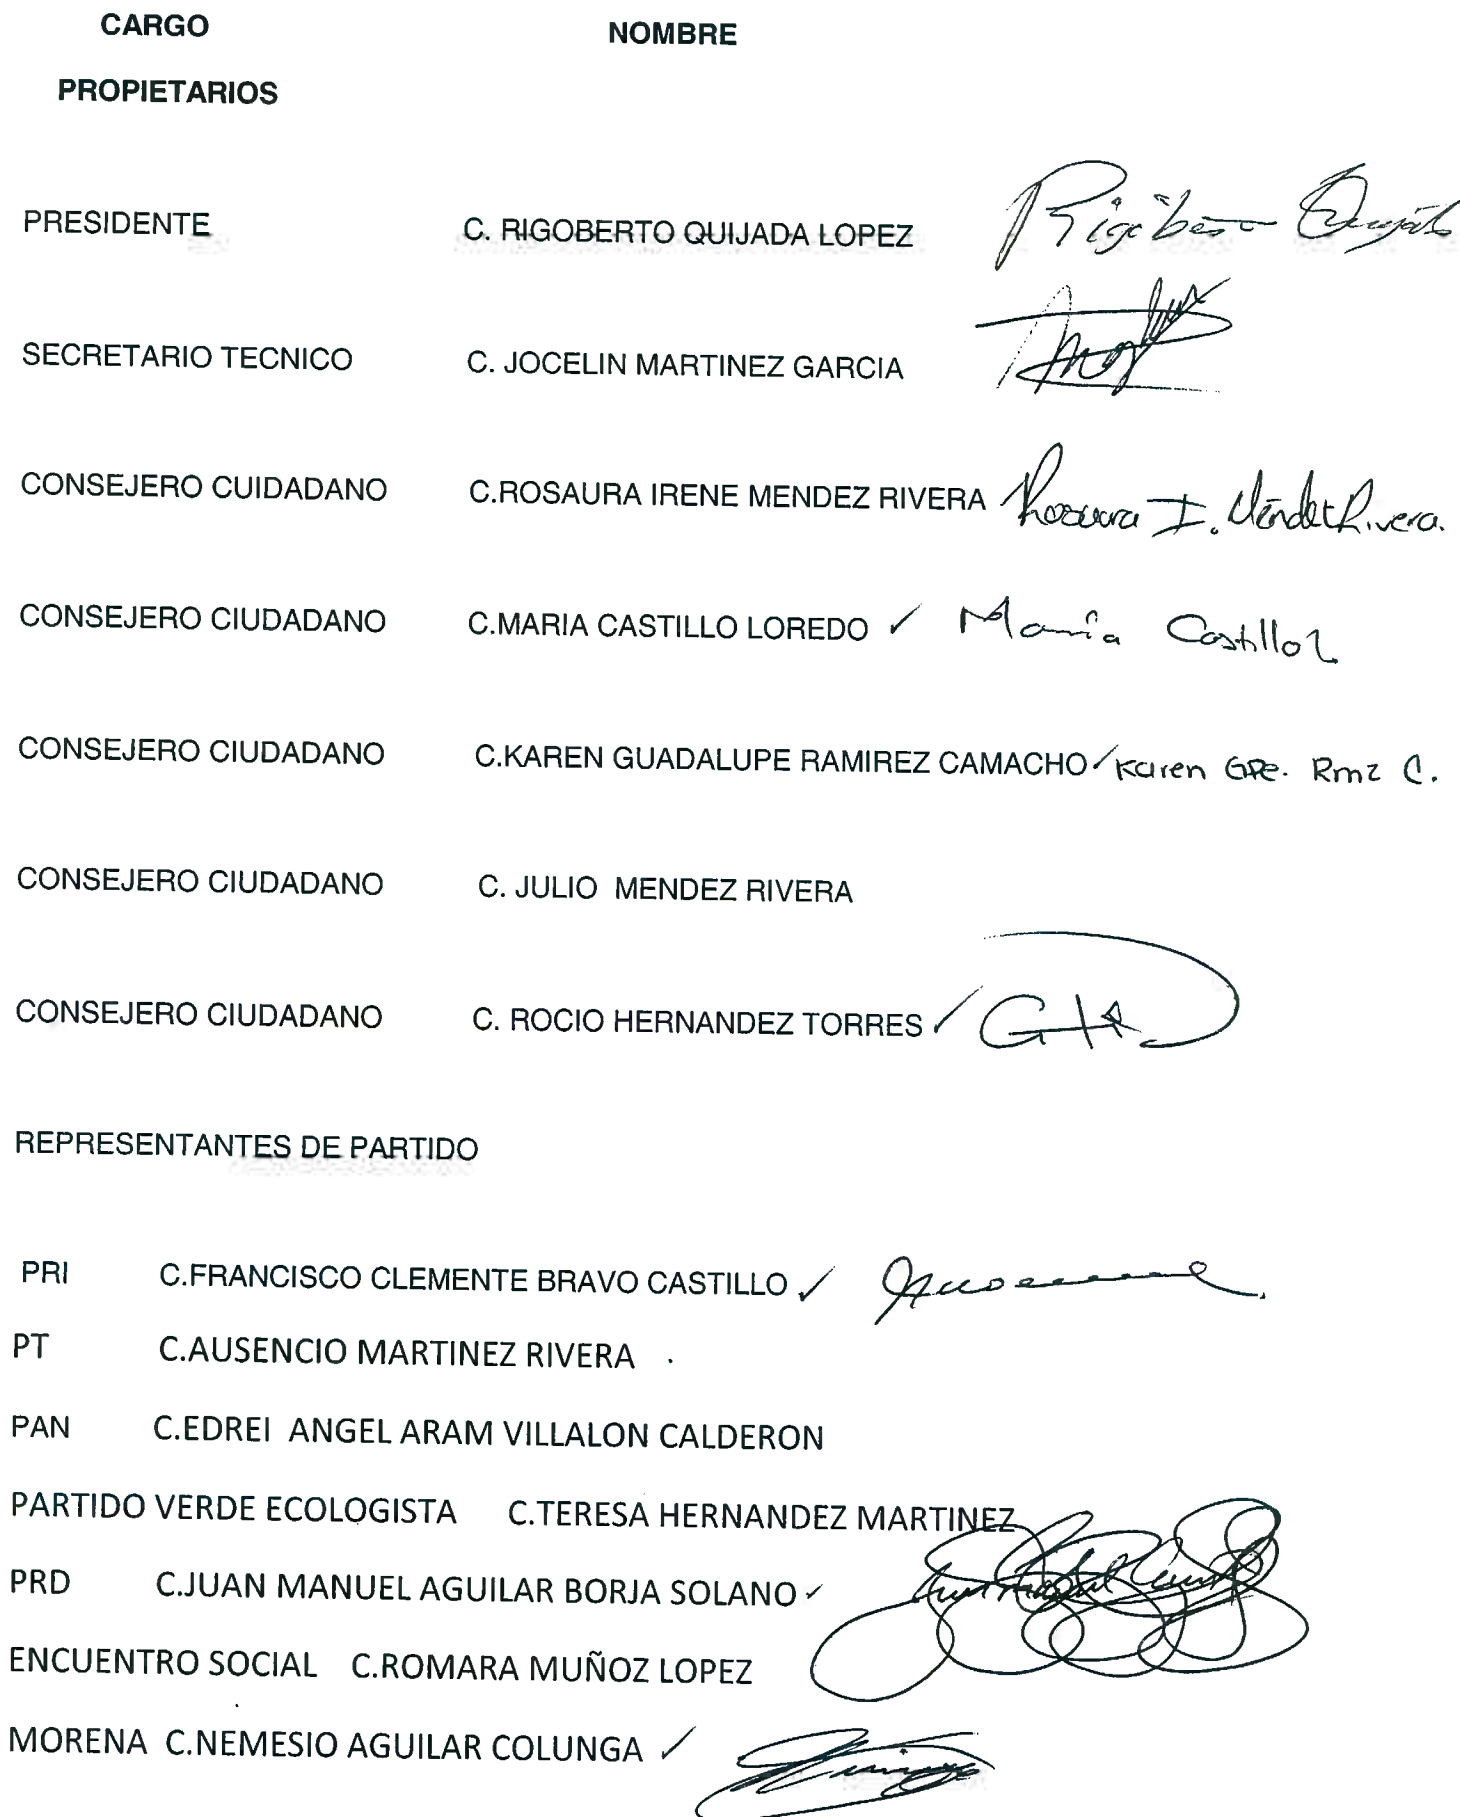 CARGO NOMBRE
PROPIETARIOS
PRESIDENTE C. RIGOBERTO QUIJADA LOPEZ Rigoberto Quijada
SECRETARIO TECNICO C. JOCELIN MARTINEZ GARCIA
CONSEJERO CUIDADANO C.ROSAURA IRENE MENDEZ RIVERA Rosaura I. Méndez Rivera.
CONSEJERO CIUDADANO C.MARIA CASTILLO LOREDO ✓ María Castillo L
CONSEJERO CIUDADANO C.KAREN GUADALUPE RAMIREZ CAMACHO ✓ Karen Gpe. Rmz C.
CONSEJERO CIUDADANO C. JULIO MENDEZ RIVERA
CONSEJERO CIUDADANO C. ROCIO HERNANDEZ TORRES ✓
REPRESENTANTES DE PARTIDO
PRI C.FRANCISCO CLEMENTE BRAVO CASTILLO ✓
PT C.AUSENCIO MARTINEZ RIVERA
PAN C.EDREI ANGEL ARAM VILLALON CALDERON
PARTIDO VERDE ECOLOGISTA C.TERESA HERNANDEZ MARTINEZ
PRD C.JUAN MANUEL AGUILAR BORJA SOLANO ✓
ENCUENTRO SOCIAL C.ROMARA MUÑOZ LOPEZ
MORENA C.NEMESIO AGUILAR COLUNGA ✓